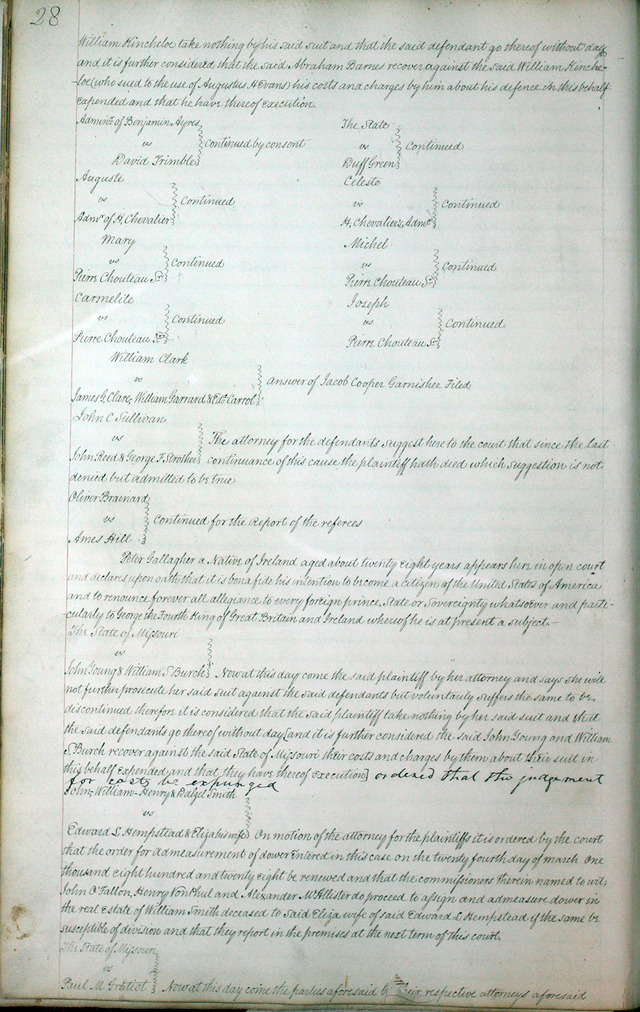 28
William Kincheloe take nothing by his said suit and that the said defendant go thereof without day
and it is further considered that the said Abraham Barnes recover against the said William Kinche-
loe (who sued to the use of Augustus H Evans) his costs and charges by him about his defence in this behalf
expended and that he have thereof execution.
Admin.r of Benjamin Ayres
vs } Continued by consent
David Trimble
The State
vs } Continued
Duff Green
Auguste
vs } Continued
Adm.r of H. Chevalier
Celeste
vs } Continued
H. Chevalier's Adm.r
Mary
vs } Continued
Pierre Chouteau Sr.
Michel
vs } Continued
Pierre Chouteau Sr.
Carmelite
vs } Continued
Pierre Chouteau Sr.
Joseph
vs } Continued
Pierre Chouteau Sr.
William Clark
vs } answer of Jacob Cooper Garnishee Filed
James G. Clare, William Garrard & Carrol
John C Sullivan
vs } The attorney for the defendants suggest here to the court that since the last
John Reed & George F Strother } continuance of this cause the plaintiff hath died which suggestion is not
denied but admitted to be true
Oliver Brainard
vs } Continued for the Report of the referees
Ames Hill
Peter Gallagher a Native of Ireland aged about twenty eight years appears here in open court
and declares upon oath that it is bona fide his intention to become a Citizen of the United States of America
and to renounce forever all allegiance to every foreign prince, State or Sovereignty whatsoever and parti-
cularly to George the Fourth King of Great Britain and Ireland whereof he is at present a subject.—
The State of Missouri
vs
John Young & William S. Burch } Now at this day come the said plaintiff by her attorney and says she will
not further prosecute her said suit against the said defendants but voluntarily suffers the same to be
discontinued therefore it is considered that the said plaintiff take nothing by her said suit and that
the said defendants go thereof without day [and it is further considered the said John Young and William
S. Burch recover against the said State of Missouri their costs and charges by them about their suit in
this behalf expended and that they have thereof execution] ordered that the judgement
for costs be expunged
John, William, Henry & Dalzel Smith
vs
Edward L. Hempstead & Eliza his wife } On motion of the attorney for the plaintiffs it is ordered by the court
that the order for admeasurement of dower entered in this case on the twenty fourth day of march one
thousand eight hundred and twenty eight be renewed and that the commissioners therein named to wit;
John O'Fallon, Henry Von Phul and Alexander McAllister do proceed to assign and admeasure dower in
the real estate of William Smith deceased to said Eliza wife of said Edward L Hempstead if the same be
susceptible of division and that they report in the premises at the next term of this court.
The State of Missouri
vs
Paul M Gratiot } Now at this day come the parties aforesaid by their respective attorneys aforesaid